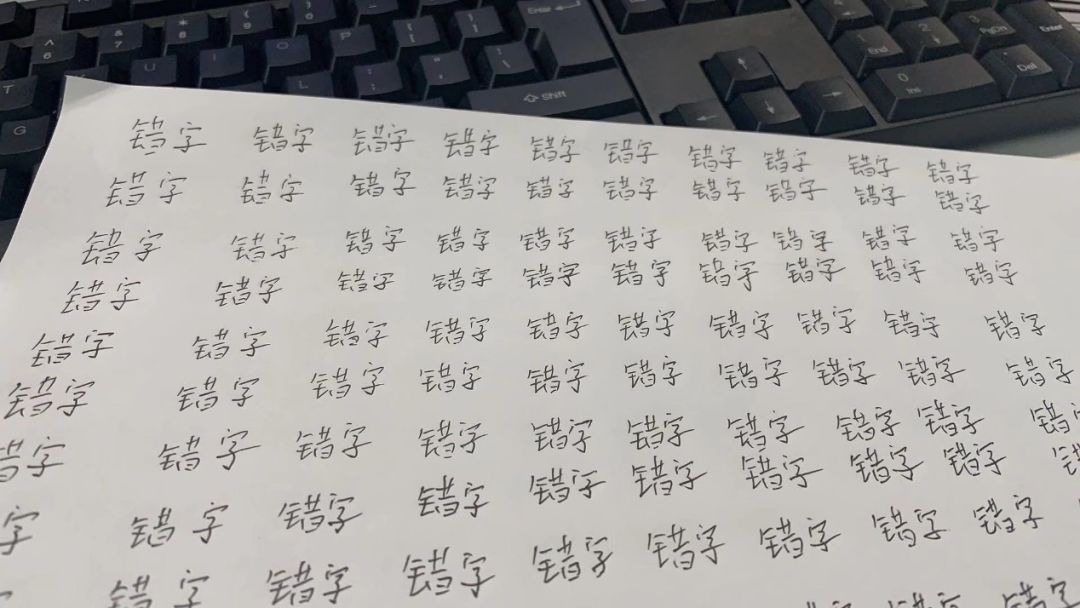 ^ & * ( ) Enter
6 7 8 9 0
T U I O P [ ] 1 2 3 Enter
G L ; Shift End PgDn
0 Ins . Del
错字 错字 错字 错字 错字 错字 错字 错字 错字 错字
错字 错字 错字 错字 错字 错字 错字 错字 错字 错字
错字 错字 错字 错字 错字 错字 错字 错字 错字 错字
错字 错字 错字 错字 错字 错字 错字 错字 错字 错字
错字 错字 错字 错字 错字 错字 错字 错字 错字 错字
错字 错字 错字 错字 错字 错字 错字 错字 错字 错字
字 错字 错字 错字 错字 错字 错字 错字 错字 错
字 错字 错字 错字 错字 错字 错字 错字 错字
错字 错字 错字 错字 错字 错字 错字 错字